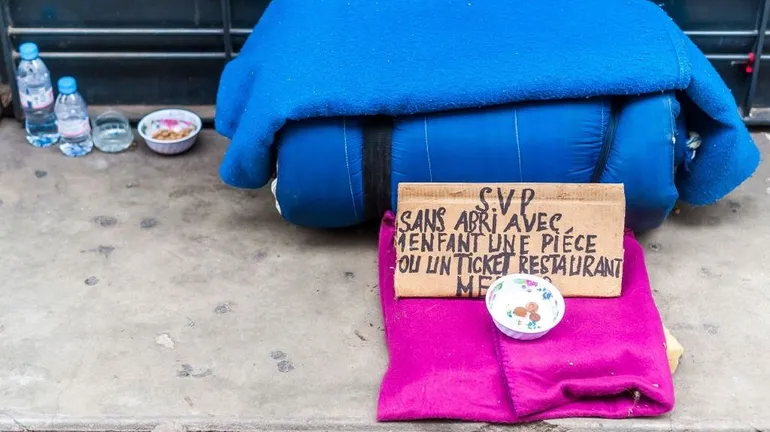 S.V.P
SANS ABRI AVEC
1 ENFANT UNE PIÉCE
OU UN TICKET RESTAURANT